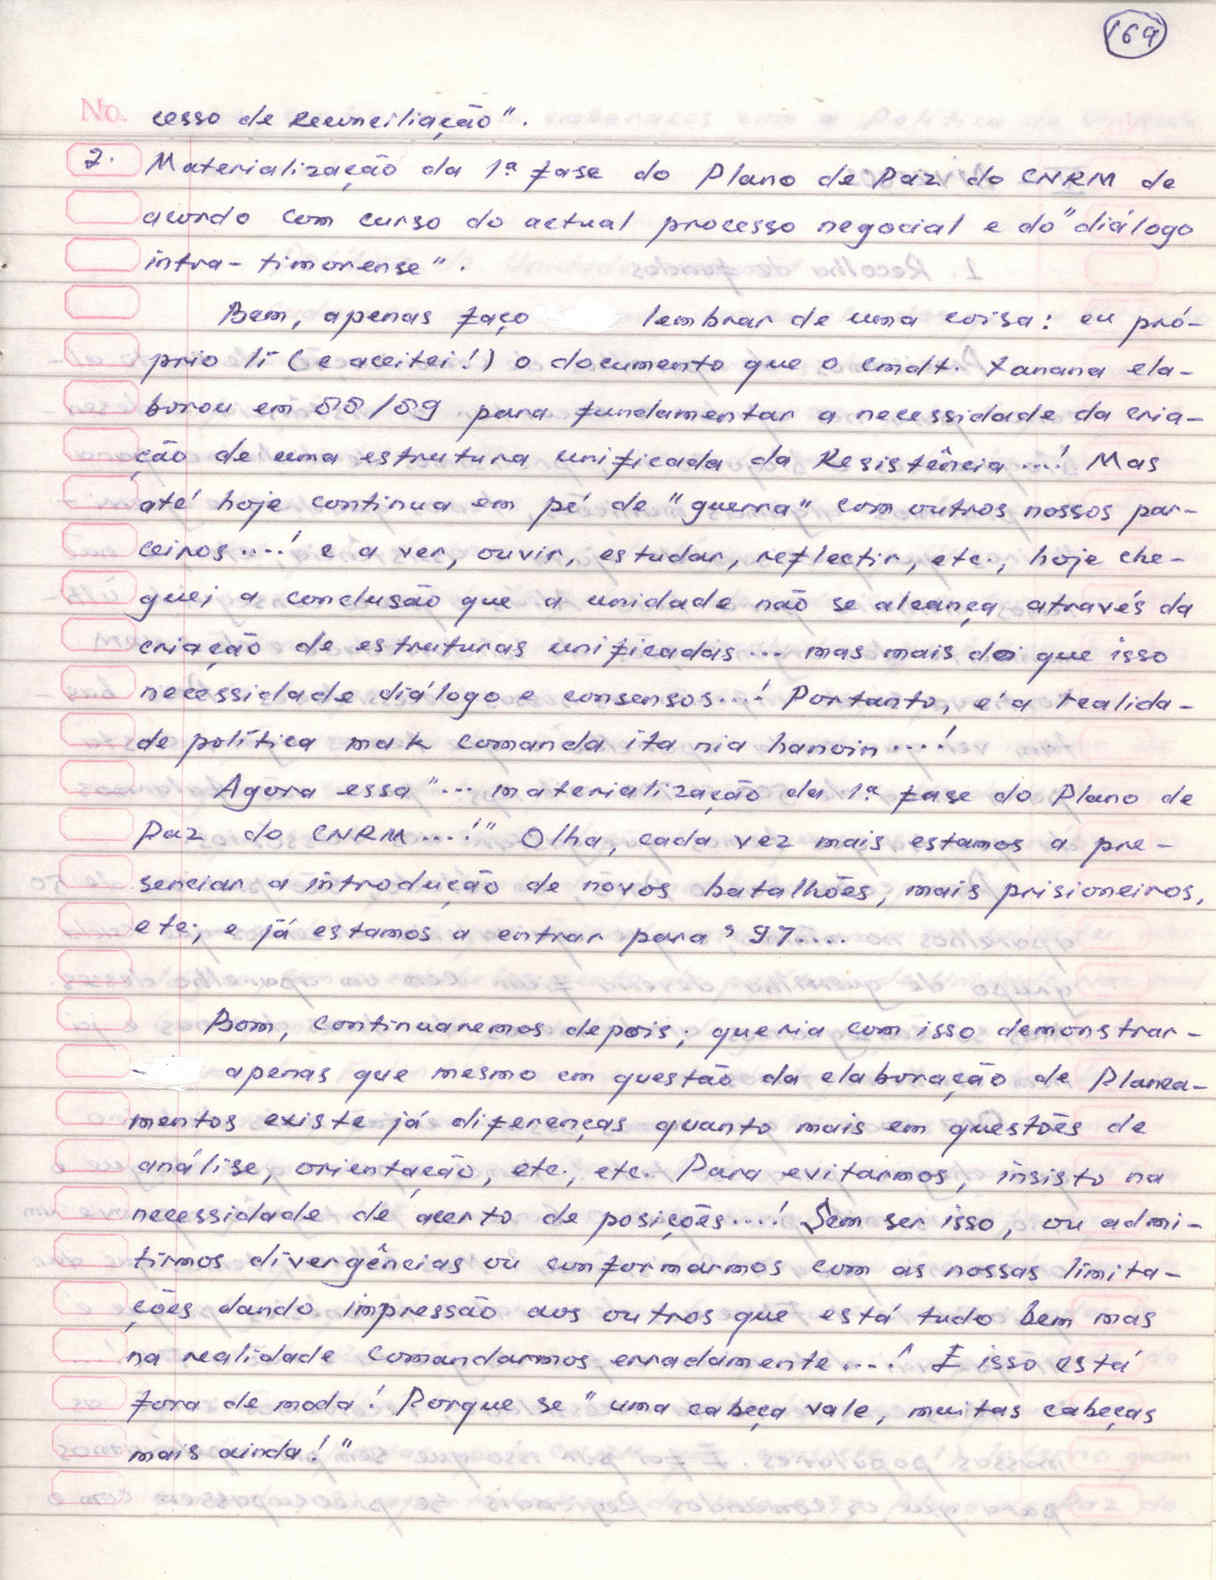 169
No. cesso de Reconciliação".
2. Materialização da 1ª fase do Plano de Paz do CNRM de
acordo com curso do actual processo negocial e do "diálogo
intra-timorense".
Bem, apenas faço lembrar de uma coisa: eu pró-
prio li (e aceitei!) o documento que o Cmdt. Xanana ela-
borou em 88/89 para fundamentar a necessidade da cria-
ção de uma estrutura unificada da Resistência...! Mas
até hoje continua em pé de "guerra" com outros nossos par-
ceiros....! e a ver, ouvir, estudar, reflectir, etc., hoje che-
guei a conclusão que a unidade não se alcança através da
criação de estruturas unificadas... mas mais do que isso
necessidade diálogo e consensos...! Portanto, é a realida-
de política mak comanda ita nia hanoin....!
Agora essa "... materialização da 1ª fase do Plano de
Paz do CNRM...!" Olha, cada vez mais estamos a pre-
senciar a introdução de novos batalhões, mais prisioneiros,
etc; e já estamos a entrar para 97....
Bom, continuaremos depois; queria com isso demonstrar-
- apenas que mesmo em questão da elaboração de Planea-
mentos existe já diferenças quanto mais em questões de
análise, orientação, etc., etc. Para evitarmos, insisto na
necessidade de acerto de posições...! Sem ser isso, ou admi-
tirmos divergências ou conformarmos com as nossas limita-
ções dando impressão aos outros que está tudo bem mas
na realidade comandarmos erradamente...! E isso está
fora de moda! Porque se "uma cabeça vale, muitas cabeças
mais ainda!"